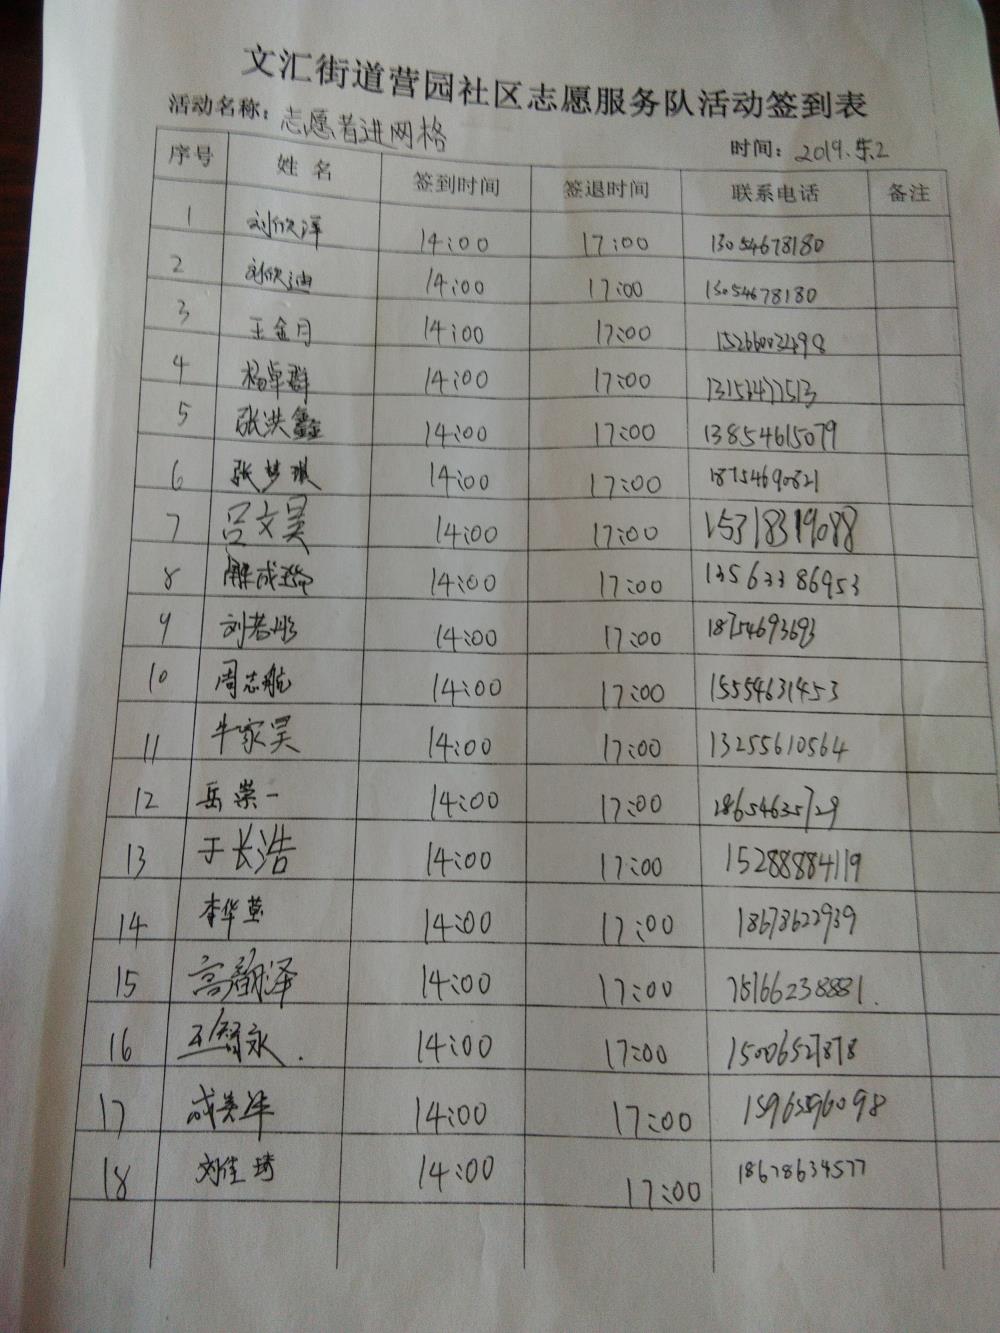 文汇街道营园社区志愿服务队活动签到表
活动名称：志愿者进网格 时间：2019.5.2
序号 姓名 签到时间 签退时间 联系电话 备注
1 刘欣洋 14:00 17:00 13054678180
2 刘欣迪 14:00 17:00 13054678180
3 王金月 14:00 17:00
4 杨卓群 14:00 17:00 13153477513
5 张洪鑫 14:00 17:00 13854615079
6 张梦琪 14:00 17:00 18754690821
7 吕文昊 14:00 17:00 15318319088
8 解成 14:00 17:00 13563386953
9 刘若彤 14:00 17:00 18754693693
10 周志航 14:00 17:00 15554631453
11 牛家昊 14:00 17:00 13255610564
12 岳崇一 14:00 17:00 18654635729
13 于长浩 14:00 17:00 15288884119
14 李华 14:00 17:00 18678622939
15 高 泽 14:00 17:00 15166238881.
16 王智永. 14:00 17:00 15006527878
17 成 14:00 17:00 15965596098
18 刘佳琦 14:00 17:00 18678634577